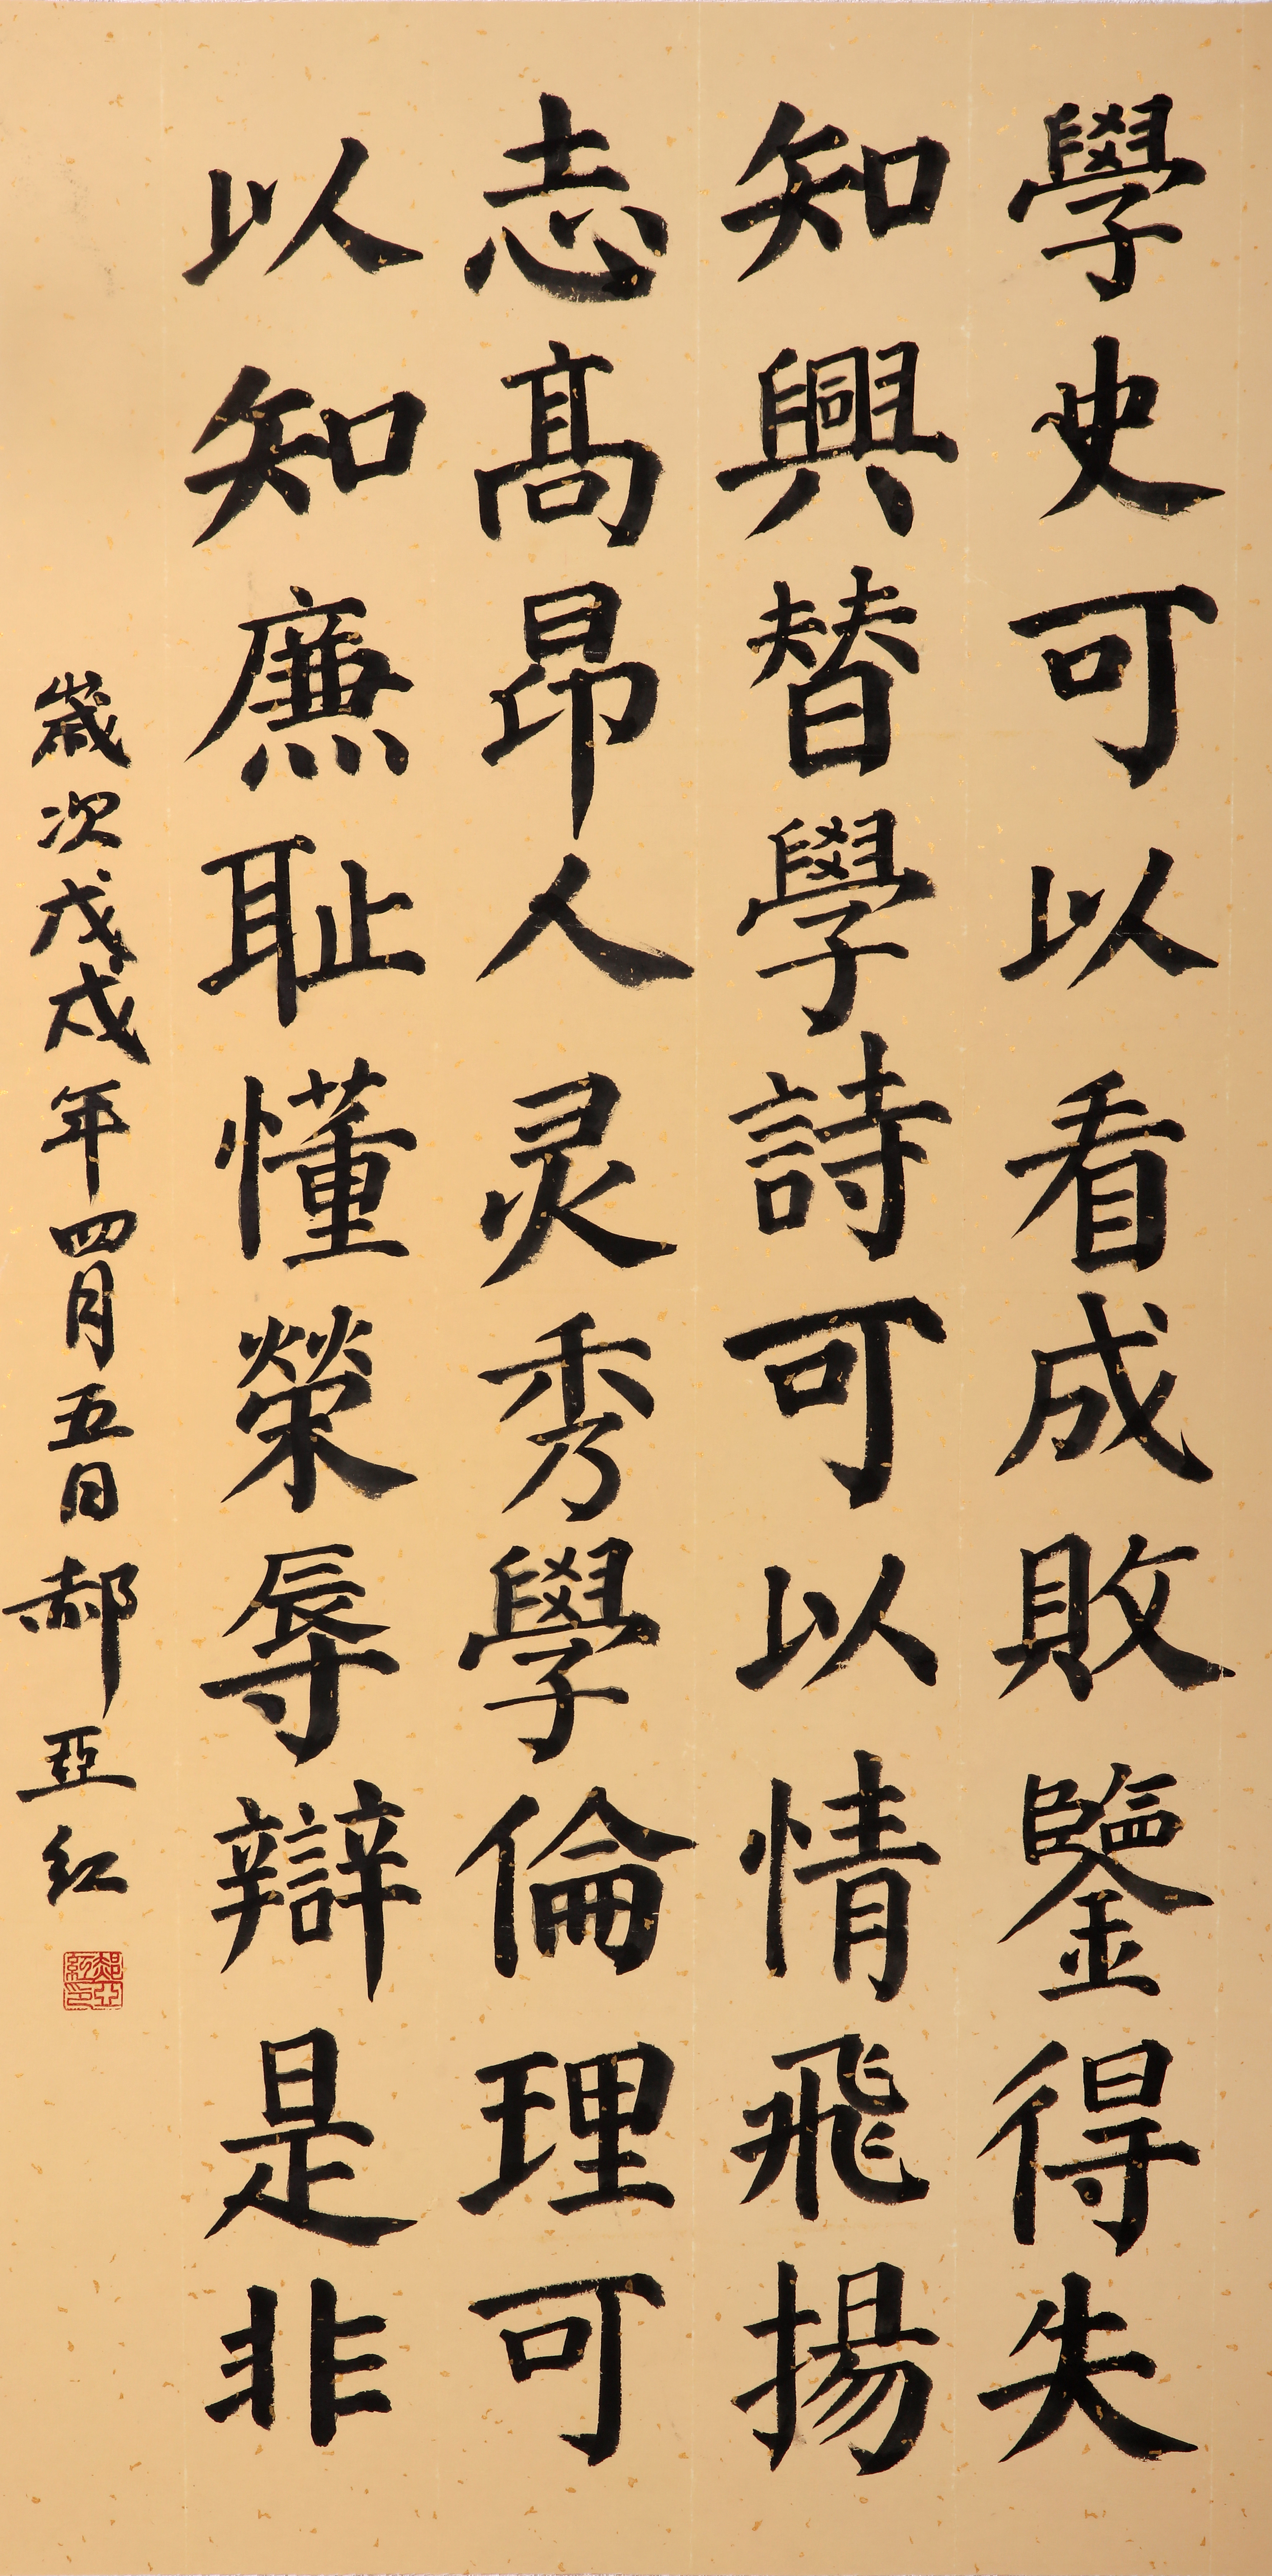 學史可以看成敗鑒得失
知興替學詩可以情飛揚
志髙昂人灵秀學倫理可
以知廉耻懂榮辱辯是非
歲次戊戌年四月五日郝亞紅
郝亞紅印